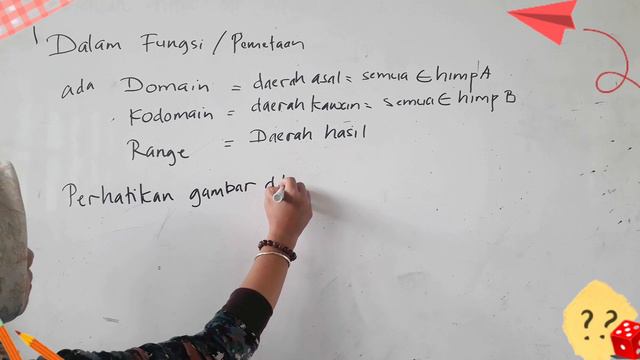 Dalam Fungsi / Pemetaan
ada Domain = daerah asal = semua ∈ himp A
Kodomain = daerah kawan = semua ∈ himp B
Range = Daerah hasil
Perhatikan gambar di
? ?